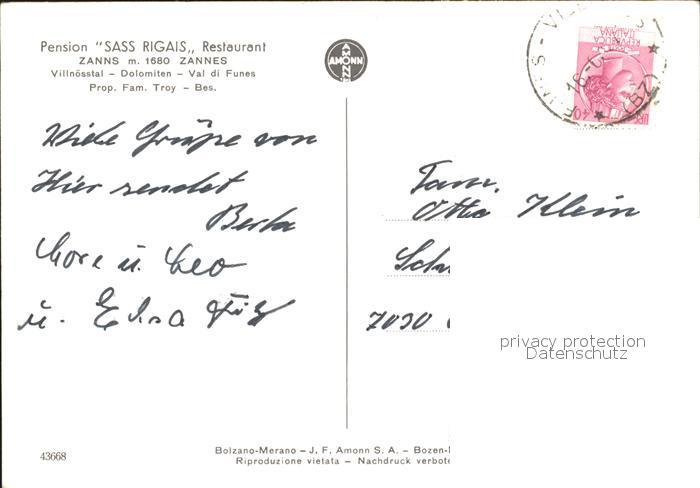 Pension "SASS RIGAIS„ Restaurant
ZANNS m. 1680 ZANNES
Villnösstal – Dolomiten – Val di Funes
Prop. Fam. Troy – Bes.
AMONN
AMONN
Viele Grüße von
Hier sendet
Berta
Lore u. Leo
u. Elsa
43668
REPVBBLICA
ITALIANA
LIRE 40
(BZ)
Fam.
Otto Klein
7030
privacy protection
Datenschutz
Bolzano-Merano – J. F. Amonn S. A. – Bozen-
Riproduzione vietata – Nachdruck verbote